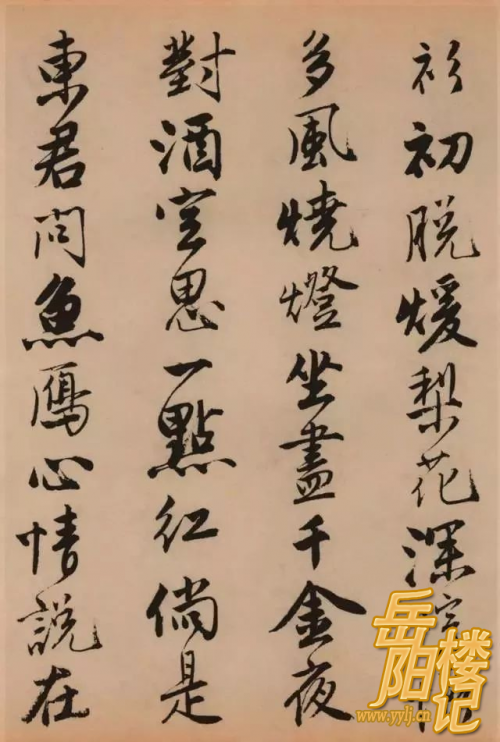 衫初脱煖梨花深
多風燒燈坐盡千金夜
對酒空思一點紅倘是
東君問魚鴈心情說在
岳阳楼记
www.yylj.cn